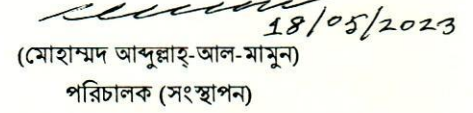 18/05/2023
(মোহাম্মদ আব্দুল্লাহ্-আল-মামুন)
পরিচালক (সংস্থাপন)